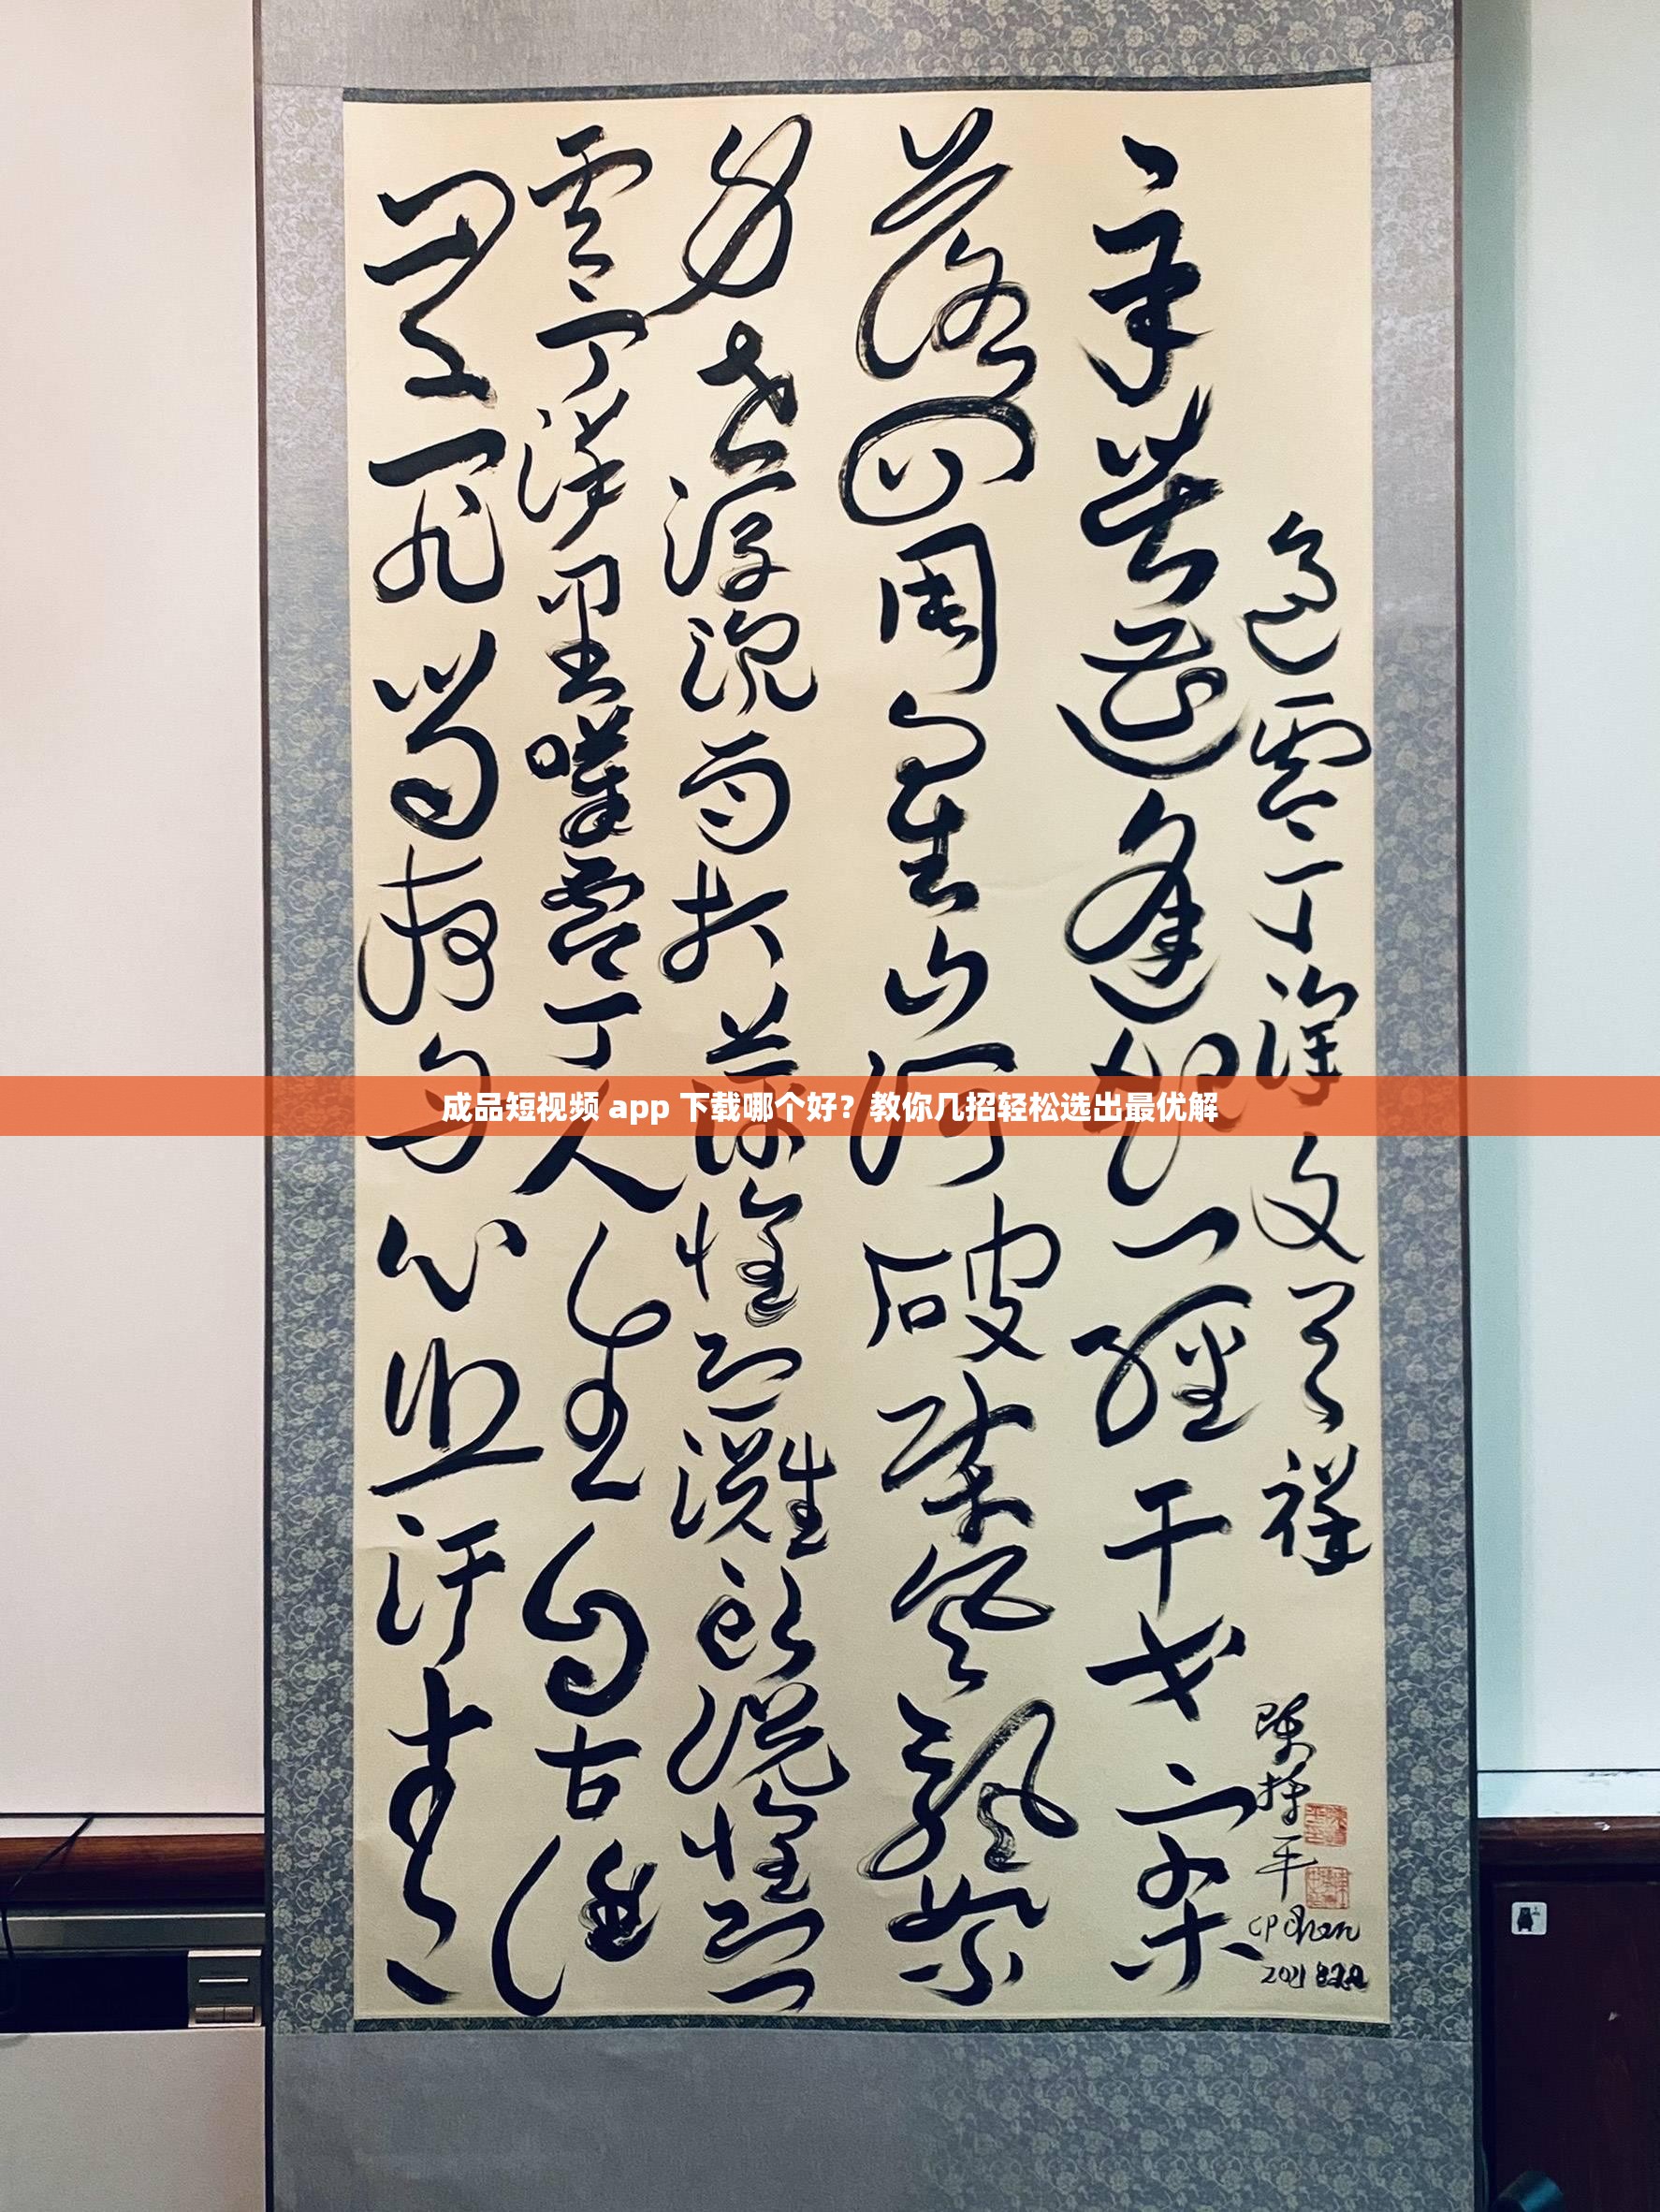 過零丁洋 文天祥
辛苦遭逢起一經干戈寥
落四周星山河破碎風飄絮
身世浮沉雨打萍惶恐灘頭說惶恐
零丁洋里嘆零丁人生自古誰
無死留取丹心照汗青
陳持平
CP Chen
成品短视频 app 下载哪个好？教你几招轻松选出最优解